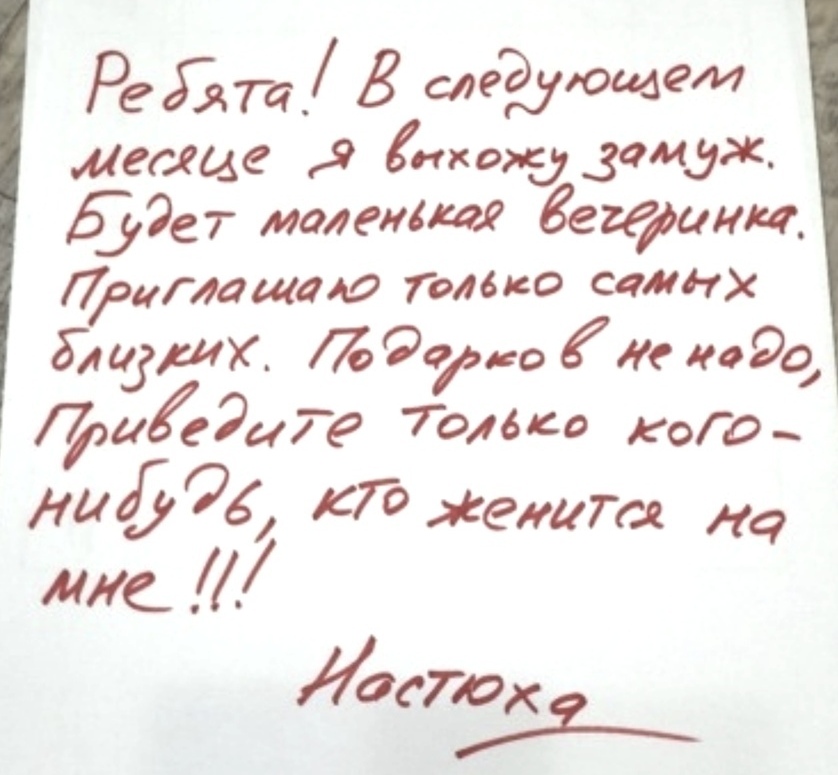 Ребята! В следующем
месяце я выхожу замуж.
Будет маленькая вечеринка.
Приглашаю только самых
близких. Подарков не надо,
Приведите только кого-
нибудь, кто женится на
мне!!!
Настюха